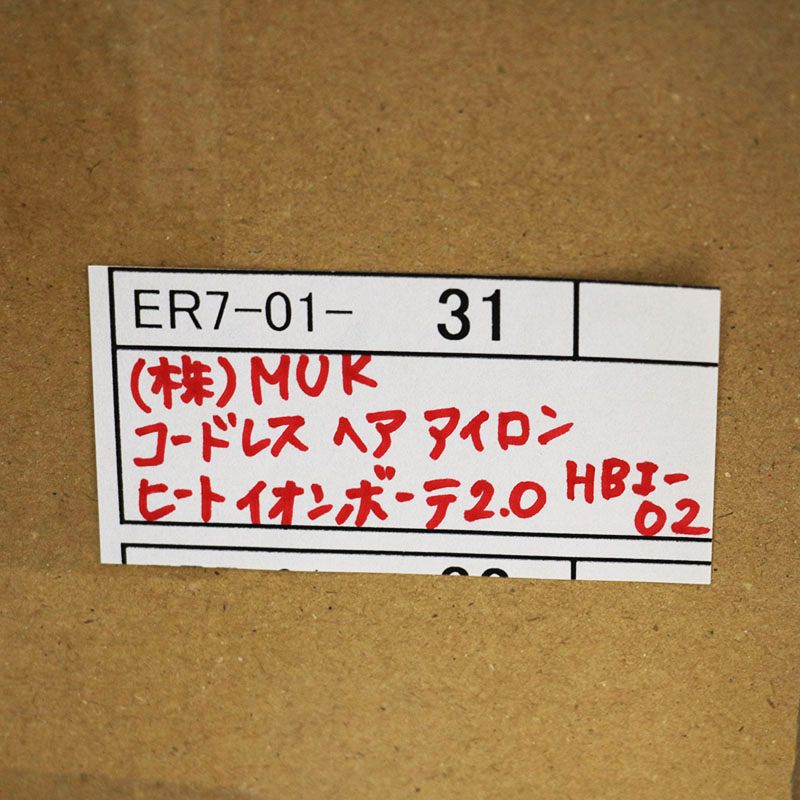 ER7-01- 31
(株)MUK
コードレス ヘア アイロン
ヒートイオンボーテ2.0 HBI-
02